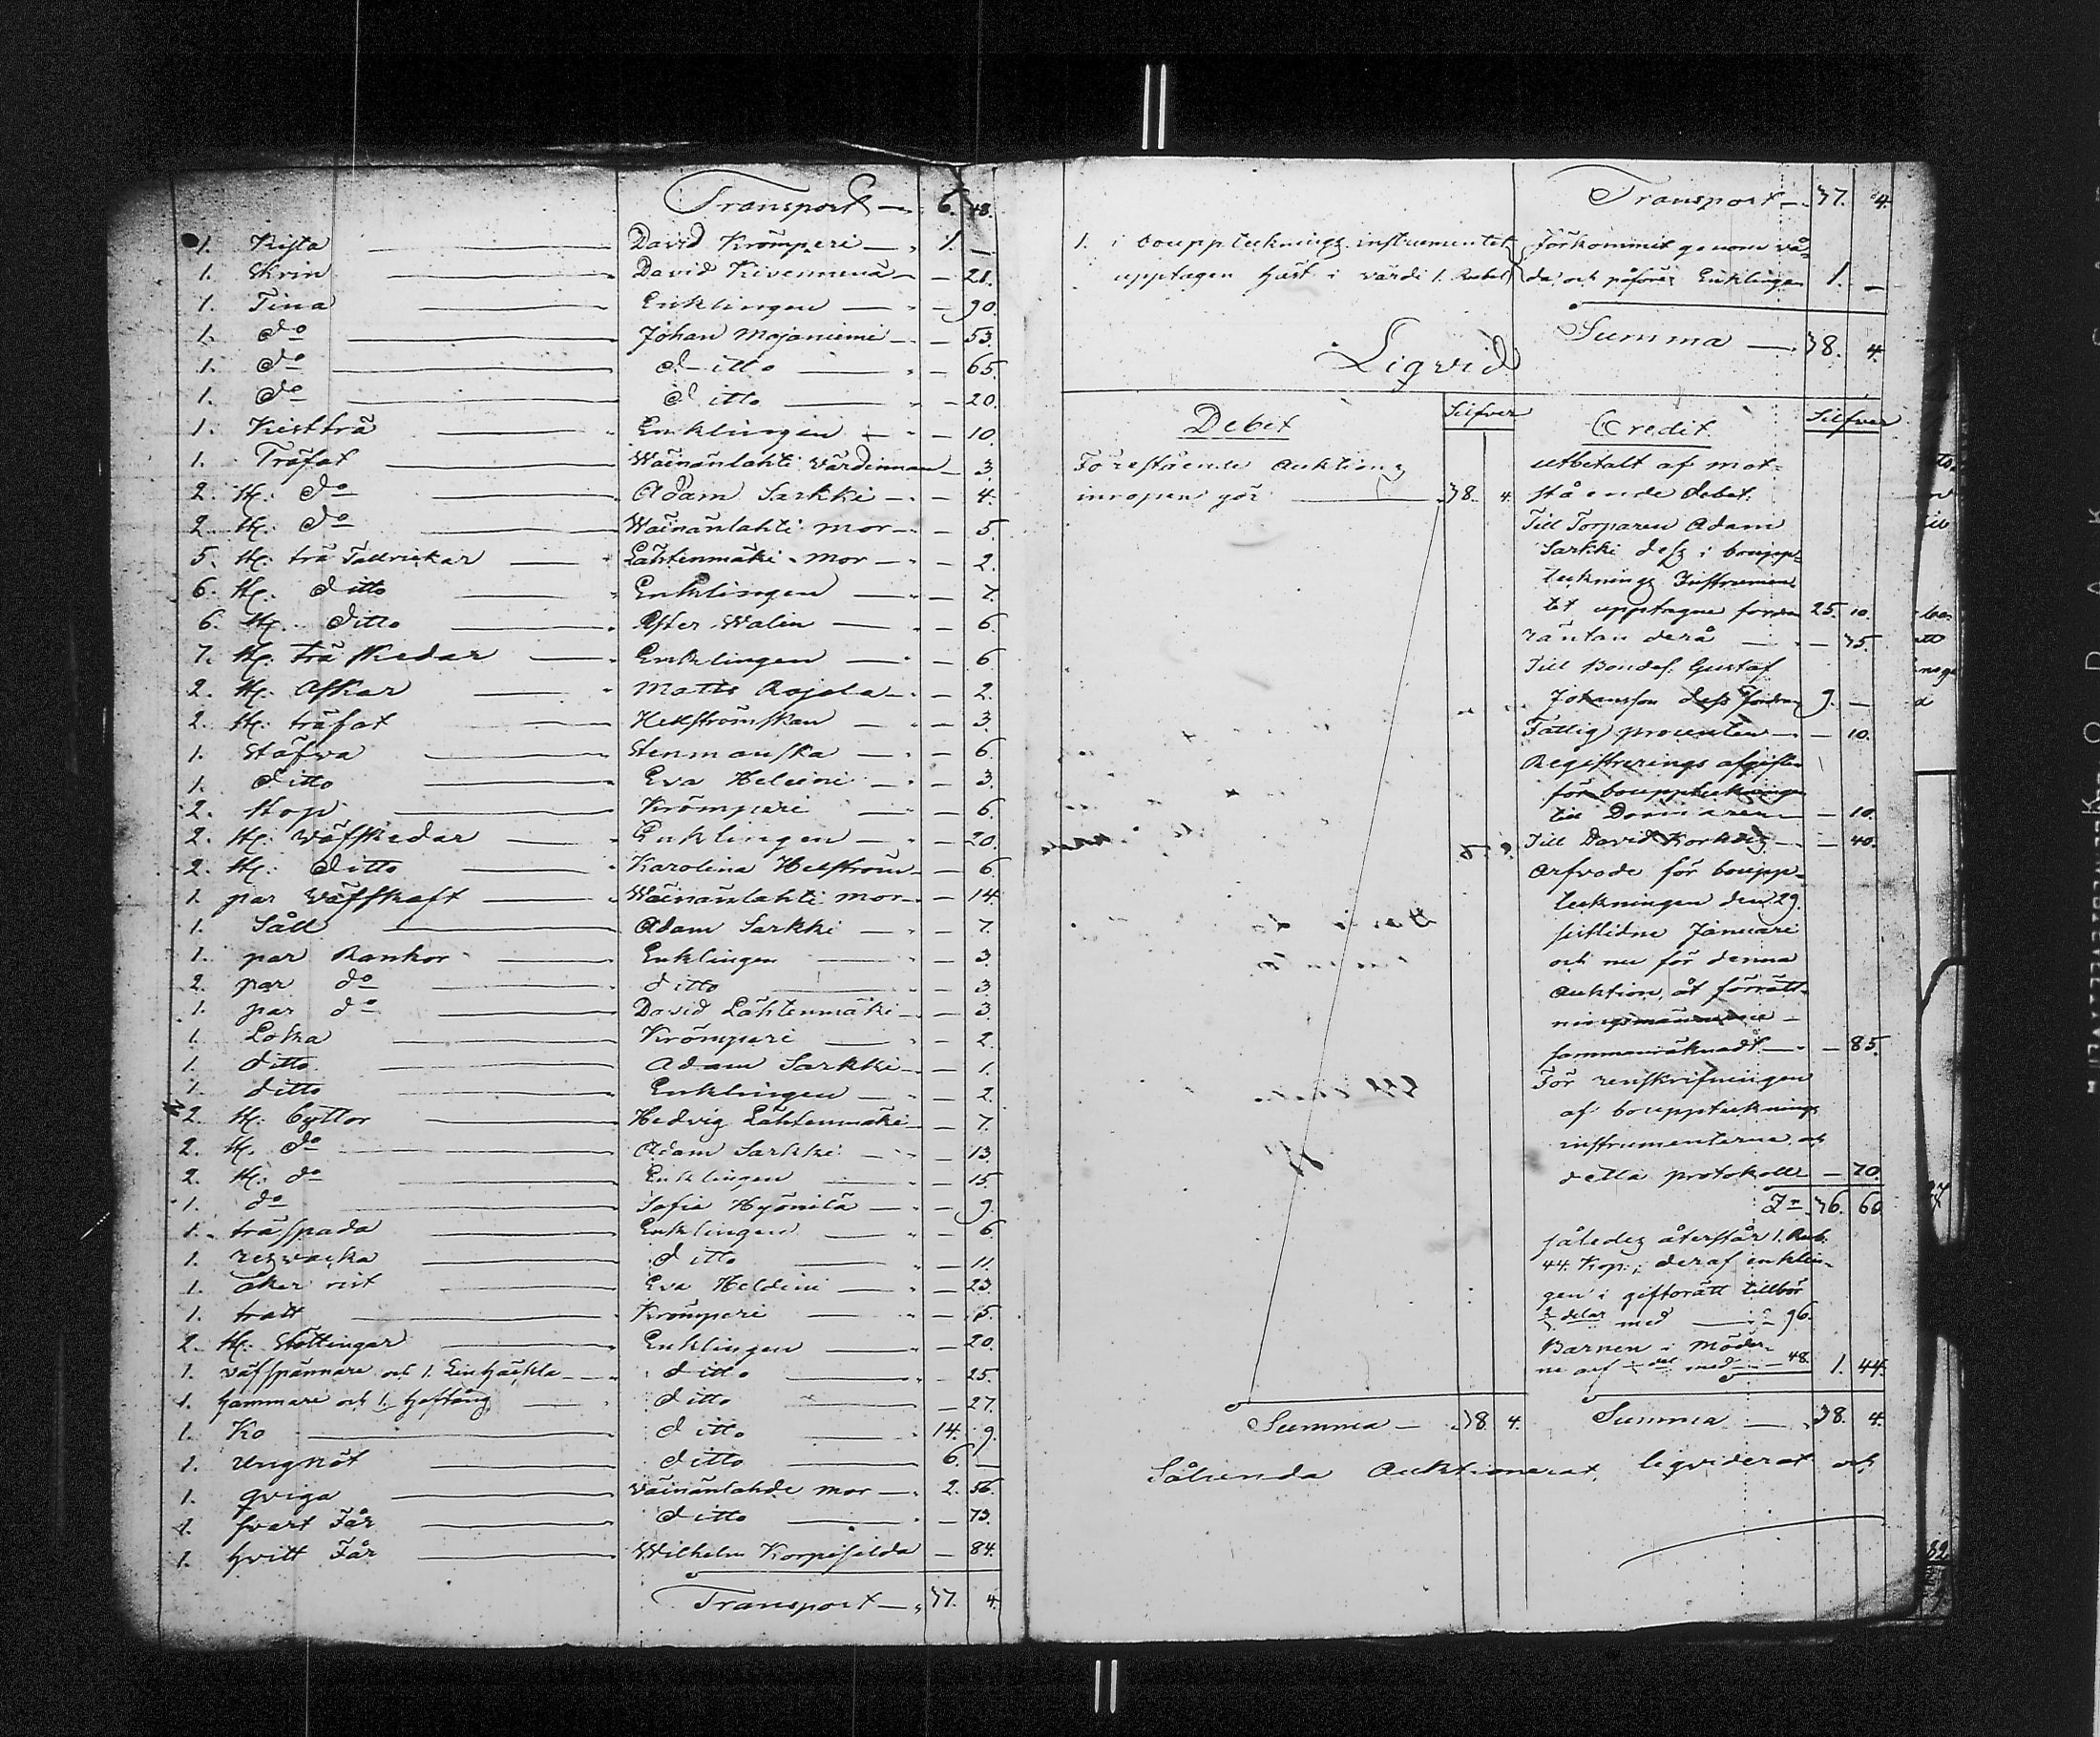 Transport 6. 48.
1. Kista David Krömperi 1. —
1. Skrin David Kivenmenä — 21.
1. Tina Enklingen — 90.
1. do Johan Mojaniemi — 53.
1. do ditto — 65.
1. do ditto — 20.
1. Kistträ Enklingen — 10.
1. Träfat Wäinänlahti värdinnan — 3.
2. st: do Adam Sarkki — 4.
2. st: do Wäinänlahti mor — 5.
5. st: trä Tallrickar Lähtenmäki mor — 2.
6. st: ditto Enklingen — 7.
6. st: ditto Walin — 6.
7. st: trä skedar Enklingen — 6
2. st: Askar Matts Rajala — 2.
2. st: träfat Hellströmskan — 3.
1. Stäfva Stenmanska — 6.
1. ditto Eva — 3.
2. Stop Krömperi — 6.
2. st: Wäfskedar Enklingen — 20.
2. st: ditto Karolina Hellström — 6.
1. par Wäfskaft Wäinänlahti mor — 14.
1. Såll Adam Sarkki — 7.
1. par Enklingen — 3.
2. par do ditto — 3.
1. par do David Lähtenmäki — 3.
1. Krömperi — 2.
1. ditto Adam Sarkki — 1.
1. ditto Enklingen — 2.
2. st: byttor Hedvig Lähtenmäki — 7.
2. st. do Adam Sarkki — 13.
2. st: do Enklingen — 15.
1. do Sofia Hyönilä — 9.
1. träspada Enklingen — 6
1. ditto — 11.
1. åker Eva — 23.
1. tratt Krömperi — 5.
2. st: Stöttingar Enklingen — 20.
1. väfspännare och 1. Linhäckla ditto — 25.
1. hammare och 1. hoftång ditto — 27.
1. Ko ditto 14. 9.
1. ungnöt ditto 6. —
1. qviga Väinänlahde mor 2. 56.
1. svart Får ditto — 73.
1. hvitt Får Wilhelm — 84.
Transport 37. 4.
Transport 37. 4.
1. i bouppteknings instrumentet förkommit genom vå-
upptagen häst i värdi 1. Rubel da och påföres Enklingen 1. —
Summa 38. 4.
Liqvid
Debet Silfver
Förestående Auktions
inropen gör 38. 4.
Summa 38. 4.
Credit. Silfver
utbetalt af mot-
stående debet.
Till Torparen Adam
Sarkki dess i boupp-
tecknings Instrumen
tet upptagne fordran 25. 10.
räntan derå — 35.
Till Bondes. Gustaf
Johansson dess fordran 9. —
Fattig procenten — 10.
Registrerings afgiften
för bouppteckningen
till Domaren — 10.
Till David — 40.
Arfvode för boupp-
teckningen den 29.
sistlidne Januari
och nu för denna
Auktion, åt förrätt-
ningsmännerna
sammanräknadt — 85.
För renskrifningen
af bouppteknings
instrumenterna och
detta protokoll — 70.
36. 60
således återstår 1. Rub.
44. Kop.; deraf enklin-
gen i giftorätt tillhör
2/3 delar med 96.
Barnen i Möder-
ne arf 1/3 del med 48. 1. 44.
Summa 38. 4.
Sålunda Auktionerat, liqviderat och